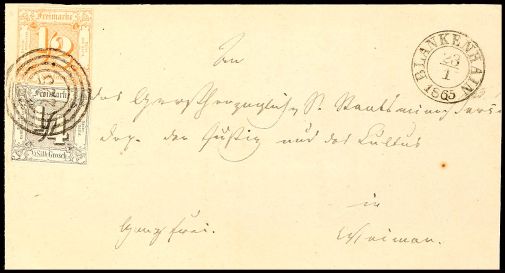 Freimarke
1/2
Freimarke
1/4
¼ Silb. Grosch.
BLANKENHAIN
23
1
1865
An
das Großherzogliche S. Staatsministerium
Dep. der Justiz und des Cultus
in
Weimar.